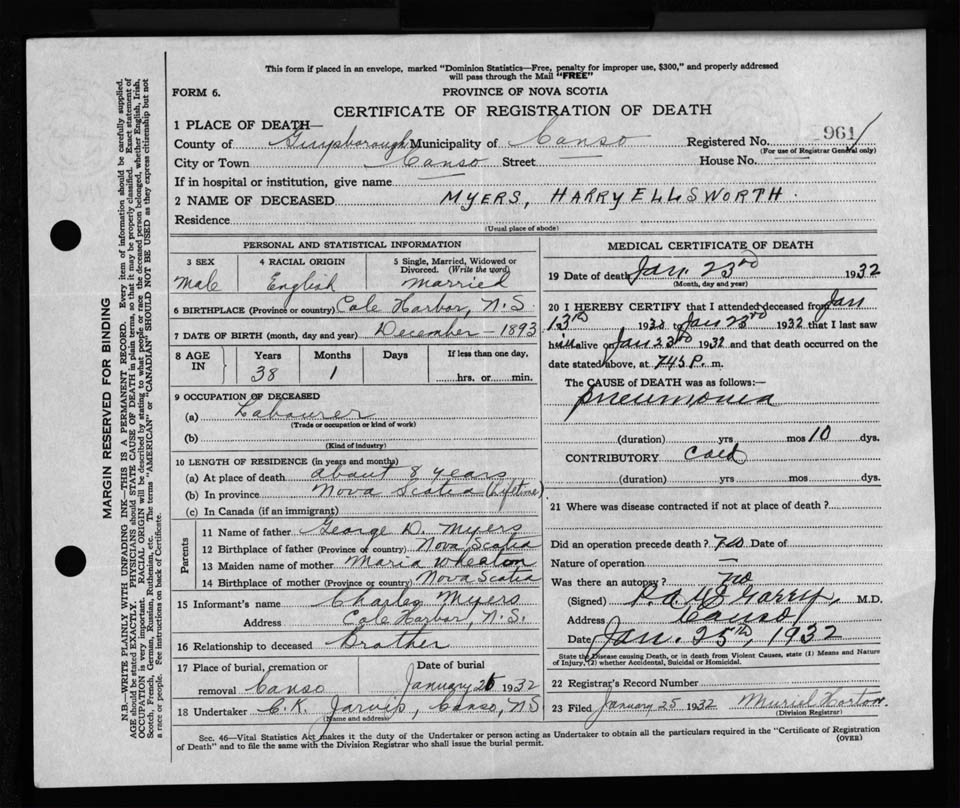 This form if placed in an envelope, marked "Dominion Statistics—Free, penalty for improper use, $300," and properly addressed
will pass through the Mail "FREE"
FORM 6.
PROVINCE OF NOVA SCOTIA
CERTIFICATE OF REGISTRATION OF DEATH
1 PLACE OF DEATH—
County of Guysborough Municipality of Canso Registered No. 961
(For use of Registrar General only)
City or Town Canso Street — House No. —
If in hospital or institution, give name
2 NAME OF DECEASED MYERS, HARRY ELLSWORTH
Residence
(Usual place of abode)
PERSONAL AND STATISTICAL INFORMATION
3 SEX 4 RACIAL ORIGIN 5 Single, Married, Widowed or
Divorced. (Write the word)
Male English Married
6 BIRTHPLACE (Province or country) Cole Harbor, N.S.
7 DATE OF BIRTH (month, day and year) December — 1893
8 AGE IN Years Months Days If less than one day,
38 1 hrs. or min.
9 OCCUPATION OF DECEASED
(a) Labourer
(Trade or occupation or kind of work)
(b)
(Kind of industry)
10 LENGTH OF RESIDENCE (in years and months)
(a) At place of death about 8 years
(b) In province Nova Scotia (Lifetime)
(c) In Canada (if an immigrant)
Parents
11 Name of father George D. Myers
12 Birthplace of father (Province or country) Nova Scotia
13 Maiden name of mother Maria Wheaton
14 Birthplace of mother (Province or country) Nova Scotia
15 Informant's name Charles Myers
Address Cole Harbor, N.S.
16 Relationship to deceased Brother
17 Place of burial, cremation or Date of burial
removal Canso January 26 1932
18 Undertaker C.K. Jarvis, Canso, N.S
(Name and address)
MEDICAL CERTIFICATE OF DEATH
19 Date of death Jan. 23rd 1932
(Month, day and year)
20 I HEREBY CERTIFY that I attended deceased from Jan
13th 1932 to Jan 23rd 1932 that I last saw
him alive on Jan 23rd 1932 and that death occurred on the
date stated above, at 7 45 P. m.
The CAUSE OF DEATH was as follows:—
Pneumonia
(duration) yrs mos 10 dys.
CONTRIBUTORY Cold
(duration) yrs. mos dys.
21 Where was disease contracted if not at place of death?
Did an operation precede death? No Date of
Nature of operation —
Was there an autopsy? no
(Signed) M.D.
Address Canso,
Date Jan. 25th, 1932
State the Disease causing Death, or in death from Violent Causes, state (1) Means and Nature
of Injury, (2) whether Accidental, Suicidal or Homicidal.
22 Registrar's Record Number
23 Filed January 25 1932 Muriel Horton.
(Division Registrar)
Sec. 46—Vital Statistics Act makes it the duty of the Undertaker or person acting as Undertaker to obtain all the particulars required in the "Certificate of Registration
of Death" and to file the same with the Division Registrar who shall issue the burial permit.
(OVER)
MARGIN RESERVED FOR BINDING
N.B.—WRITE PLAINLY WITH UNFADING INK—THIS IS A PERMANENT RECORD. Every item of information should be carefully supplied.
AGE should be stated EXACTLY. PHYSICIANS should STATE CAUSE OF DEATH in plain terms, so that it may be properly classified. Exact statement of
OCCUPATION is very important. RACIAL ORIGIN will be described by stating to what people or race the deceased person belonged, whether English, Irish,
Scotch, French, German, Russian, Ruthenian, etc. The terms "AMERICAN" or "CANADIAN" SHOULD NOT BE USED as they express citizenship but not
a race or people. Fee instructions on back of Certificate.